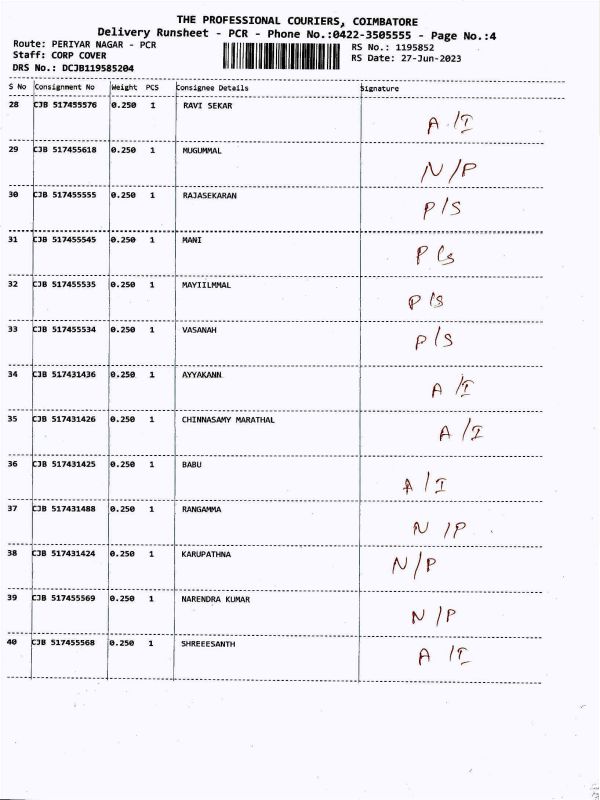 THE PROFESSIONAL COURIERS, COIMBATORE
Delivery Runsheet - PCR - Phone No.:0422-3505555 - Page No.:4
Route: PERIYAR NAGAR - PCR RS No.: 1195852
Staff: CORP COVER RS Date: 27-Jun-2023
DRS No.: DCJB119585204
S No Consignment No Weight PCS Consignee Details Signature
28 CJB 517455576 0.250 1 RAVI SEKAR A/I
29 CJB 517455618 0.250 1 MUGUMMAL N/P
30 CJB 517455555 0.250 1 RAJASEKARAN P/S
31 CJB 517455545 0.250 1 MANI P/S
32 CJB 517455535 0.250 1 MAYIILMMAL P/S
33 CJB 517455534 0.250 1 VASANAH P/S
34 CJB 517431436 0.250 1 AYYAKANN A/I
35 CJB 517431426 0.250 1 CHINNASAMY MARATHAL A/I
36 CJB 517431425 0.250 1 BABU A/I
37 CJB 517431488 0.250 1 RANGAMMA N/P
38 CJB 517431424 0.250 1 KARUPATHNA N/P
39 CJB 517455569 0.250 1 NARENDRA KUMAR N/P
40 CJB 517455568 0.250 1 SHREEESANTH A/I